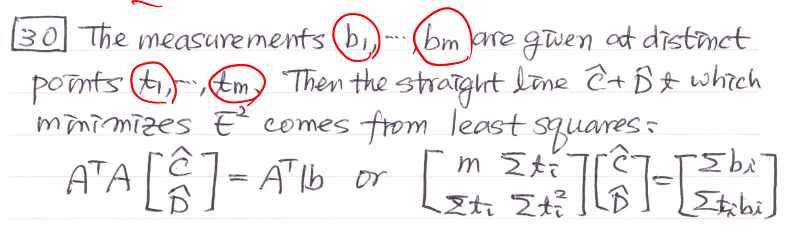 30 The measurements b₁, ⋯, bm are given at distinct
points t₁, ⋯, tm. Then the straight line Ĉ + D̂t which
minimizes E² comes from least squares:
AᵀA [Ĉ D̂] = Aᵀb or [m Σtᵢ Σtᵢ Σtᵢ²] [Ĉ D̂] = [Σbᵢ Σtᵢbᵢ]